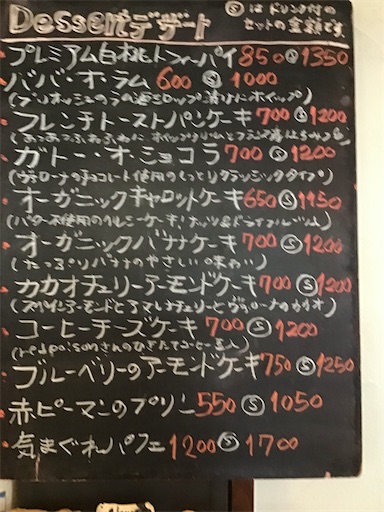 Dessert デザート Ⓢはドリンク付の
セットの金額です。
プレミアム白桃トフィーパイ 850 Ⓢ 1350
ババ・オ・ラム 600 Ⓢ 1000
フレンチトーストパンケーキ 700 Ⓢ 1200
ガトー・オ・ショコラ 700 Ⓢ 1200
(ヴァローナのチョコレート使用のしっとりクラシックタイプ)
オーガニックキャロットケーキ 650 Ⓢ 1150
オーガニックバナナケーキ 700 Ⓢ 1200
(たっぷりバナナのやさしい味わい)
カカオチェリーアーモンドケーキ 700 Ⓢ 1200
(スペインアーモンドとチェリーとヴァローナのカカオ)
コーヒーチーズケーキ 700 Ⓢ 1200
(red poisonさんのひきたてコーヒー豆入)
ブルーベリーのアーモンドケーキ 750 Ⓢ 1250
赤ピーマンのプリン 550 Ⓢ 1050
気まぐれパフェ 1200 Ⓢ 1700